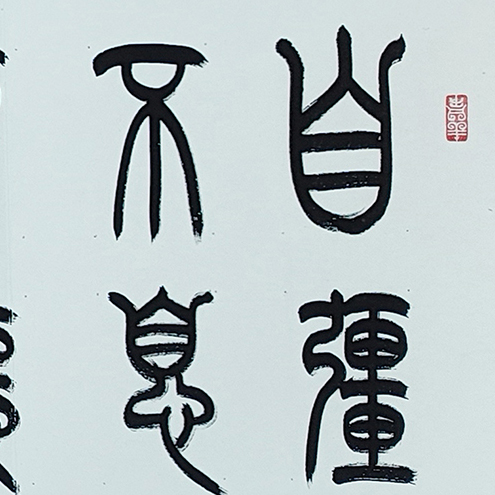 自彊
不息